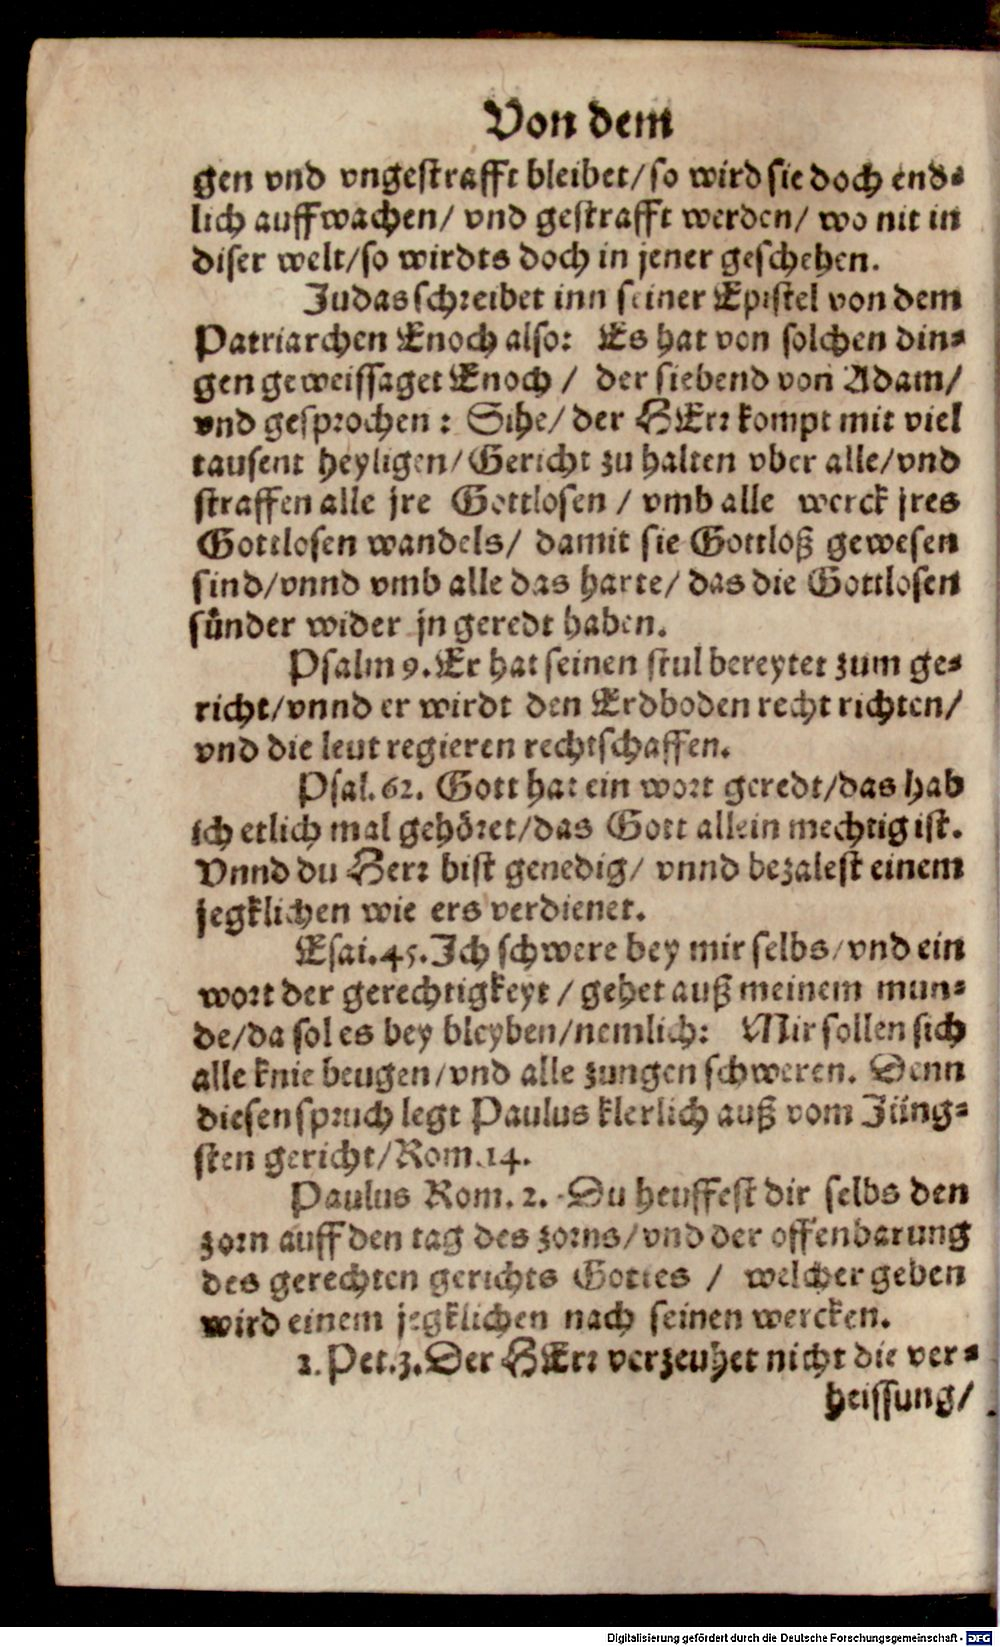 Von dem
gen vnd vngestrafft bleibet/so wird sie doch end⸗
lich auffwachen/ vnd gestrafft werden/ wo nit in
diser welt/so wirdts doch in jener geschehen.
Judas schreibet inn seiner Epistel von dem
Patriarchen Enoch also: Es hat von solchen din⸗
gen geweissaget Enoch / der siebend von Adam/
vnd gesprochen : Sihe/ der HErr kompt mit viel
tausent heyligen/ Gericht zu halten vber alle/vnd
straffen alle jre Gottlosen / vmb alle werck jres
Gottlosen wandels/ damit sie Gottloß gewesen
sind/vnnd vmb alle das harte/ das die Gottlosen
sünder wider jn geredt haben.
Psalm 9. Er hat seinen stul bereytet zum ge⸗
richt/vnnd er wirdt den Erdboden recht richten/
vnd die leut regieren rechtschaffen.
Psal. 62. Gott hat ein wort geredt/das hab
ich etlich mal gehöret/das Gott allein mechtig ist.
Vnnd du Herr bist genedig/ vnnd bezalest einem
jegklichen wie ers verdienet.
Esai. 45. Ich schwere bey mir selbs/vnd ein
wort der gerechtigkeyt / gehet auß meinem mun⸗
de/da sol es bey bleyben/nemlich: Mir sollen sich
alle knie beugen/vnd alle zungen schweren. Denn
diesen spruch legt Paulus klerlich auß vom Jüng⸗
sten gericht/Rom. 14.
Paulus Rom. 2. Du heuffest dir selbs den
zorn auff den tag des zorns/vnd der offenbarung
des gerechten gerichts Gottes / welcher geben
wird einem jegklichen nach seinen wercken.
2. Pet. 3. Der HErr verzeuhet nicht die ver⸗
heissung/
Digitalisierung gefördert durch die Deutsche Forschungsgemeinschaft - DFG